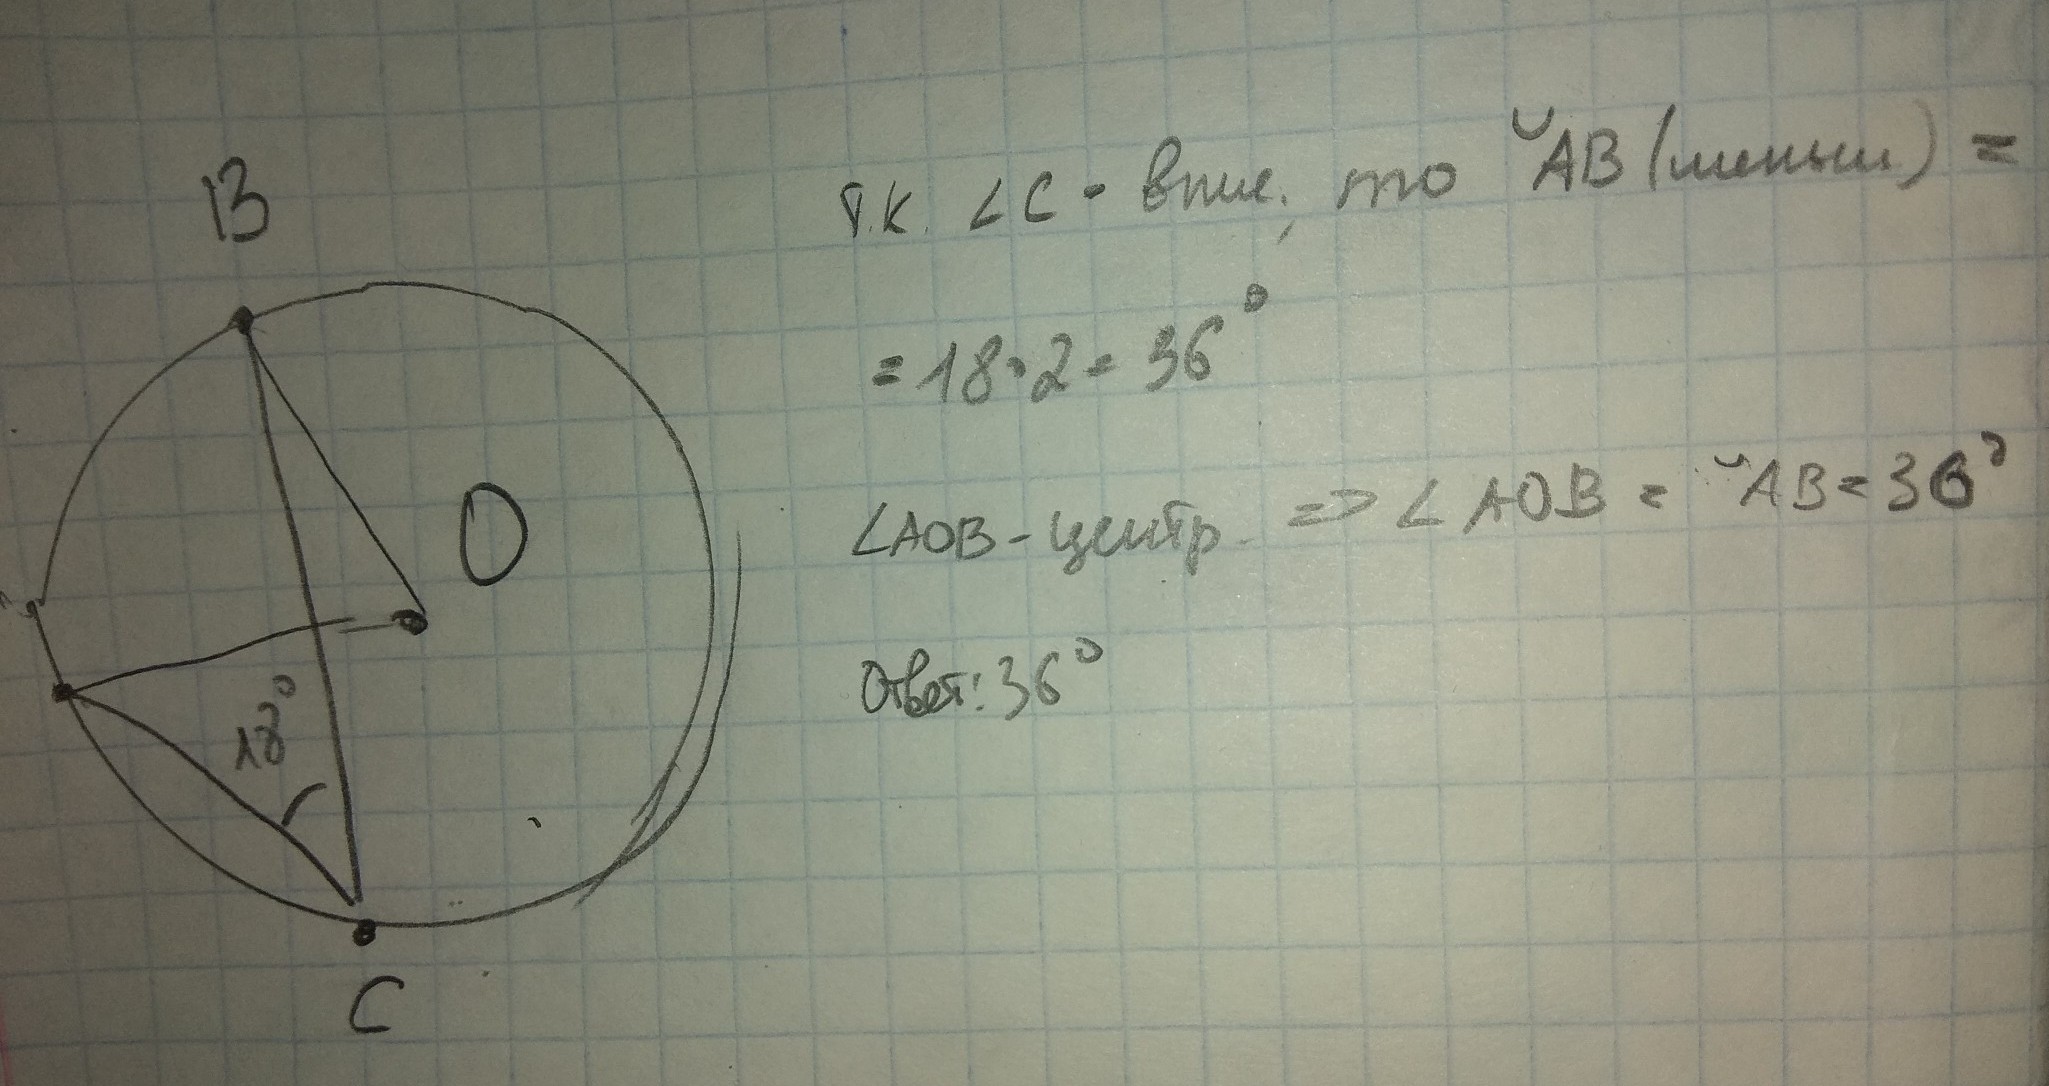 B
O
18°
C
т.к. ∠C - впис., то ◡AB (меньш) =
= 18·2 = 36°
∠AOB - центр. => ∠AOB = ◡AB = 36°
Ответ: 36°